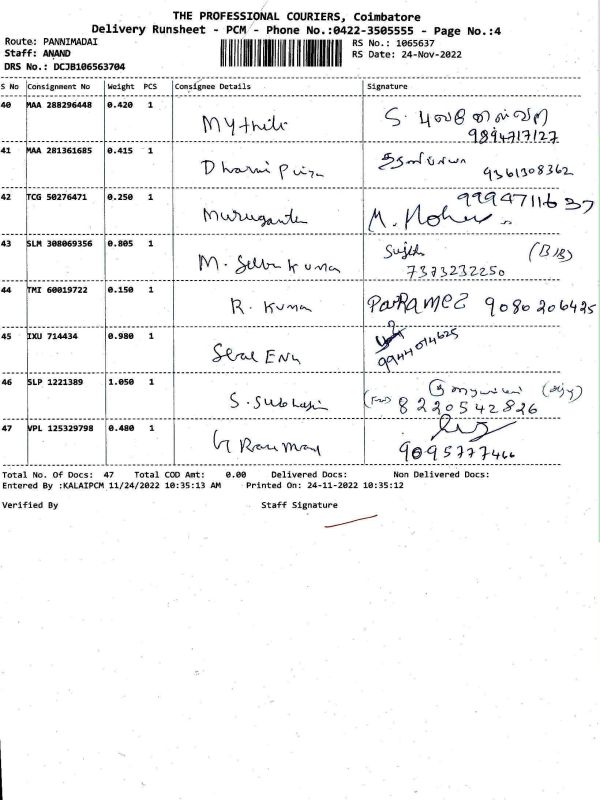 THE PROFESSIONAL COURIERS, Coimbatore
Delivery Runsheet - PCM - Phone No.:0422-3505555 - Page No.:4
Route: PANNIMADAI
Staff: ANAND
DRS No.: DCJB106563704
RS No.: 1065637
RS Date: 24-Nov-2022
S No Consignment No Weight PCS Consignee Details Signature
40 MAA 288296448 0.420 1 Mythili S.
9894717127
41 MAA 281361685 0.415 1 Dharni Priya 9361308362
42 TCG 50276471 0.250 1 9994711637
43 SLM 308069356 0.805 1 M. (B/B)
7373232250
44 TMI 60019722 0.150 1 R. Kuma PaRAMES 9080206425
45 IXU 714434 0.980 1 9944014625
46 SLP 1221389 1.050 1 S. 8220542826
47 VPL 125329798 0.480 1 9095777466
Total No. Of Docs: 47 Total COD Amt: 0.00 Delivered Docs: Non Delivered Docs:
Entered By :KALAIPCM 11/24/2022 10:35:13 AM Printed On: 24-11-2022 10:35:12
Verified By Staff Signature